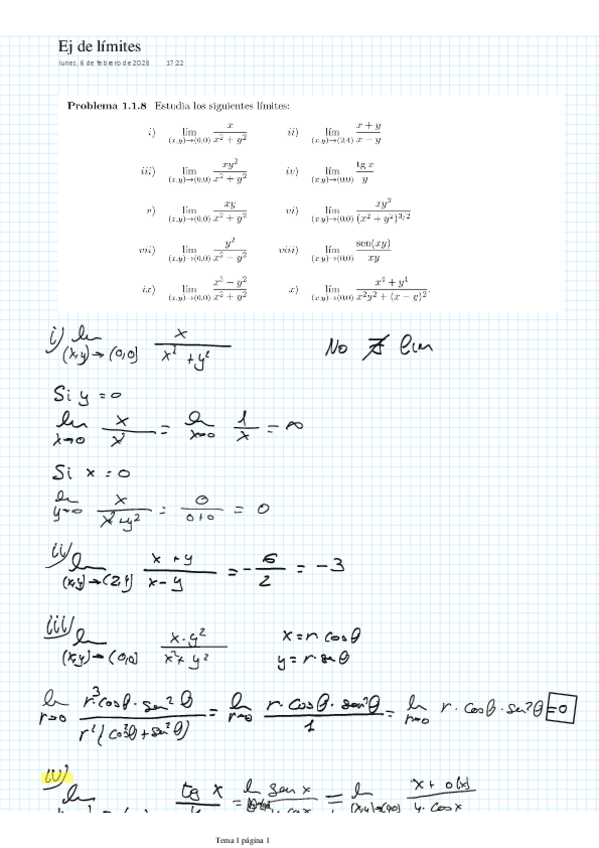 Ej de límites
lunes, 6 de febrero de 2023 17:22
Problema 1.1.8 Estudia los siguientes límites:
i) lím (x,y)→(0,0) x / x² + y² ii) lím (x,y)→(2,4) x + y / x − y
iii) lím (x,y)→(0,0) xy² / x² + y² iv) lím (x,y)→(0,0) tg x / y
v) lím (x,y)→(0,0) xy / x² + y² vi) lím (x,y)→(0,0) xy² / (x² + y²)^3/2
vii) lím (x,y)→(0,0) y² / x² − y² viii) lím (x,y)→(0,0) sen(xy) / xy
ix) lím (x,y)→(0,0) x² − y² / x² + y² x) lím (x,y)→(0,0) / x²y² + (x − y)² .
i) lim (x,y)→(0,0) x / x² + y² No ∄ lim
Si y = 0
lim x→0 x / x² = lim x→0 1 / x = ∞
Si x = 0
lim y→0 x / x² + y² = 0 / 0 + 0 = 0
ii) lim (x,y)→(2,4) x + y / x − y = − 6 / 2 = −3
iii) lim (x,y)→(0,0) x·y² / x² + y² x = r cos θ
y = r·sen θ
lim r→0 r³cosθ·sen²θ / r²(cos²θ + sen²θ) = lim r→0 r·cosθ·sen²θ / 1 = lim r→0 r·cosθ·sen²θ = 0
iv) lim tg x = lim sen x / cos x = lim (x,y)→(0,0) x + o(x) / y·cos x
Tema 1 página 1